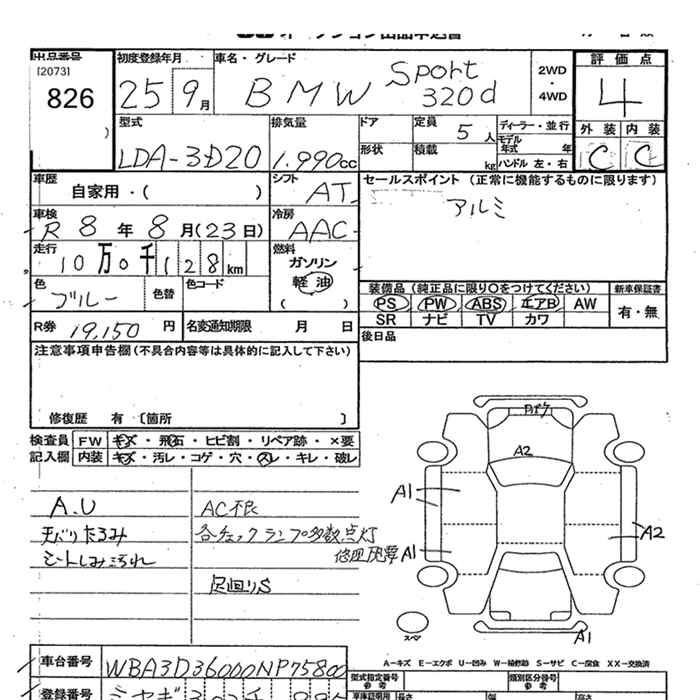 出品番号
[2073]
826
初度登録年月
25 9月
車名・グレード
BMW Sport 320d
2WD
・
4WD
評価点
4
外装 内装
C C
型式
LDA-3D20
排気量
1.990cc
ドア
定員
5人
ディーラー・並行
モデル年式 年
形状
積載
kg
ハンドル 左・右
車歴
自家用・( )
シフト
AT
セールスポイント (正常に機能するものに限ります)
アルミ
車検
R8年8月(23日)
冷房
AAC
走行
10万0千128km
燃料
ガソリン
軽油
( )
色
ブルー
色替
色コード
装備品 (純正品に限り○をつけてください)
新車保証書
PS PW ABS エアB AW
SR ナビ TV カワ
有・無
R券 19,150円
名変通知期限 月 日
後日品
注意事項申告欄(不具合内容等は具体的に記入して下さい)
修復歴 有 〔箇所 〕
検査員記入欄
FW キズ・飛石・ヒビ割・リペア跡・×要
内装 キズ・汚レ・コゲ・穴・スレ・キレ・破レ
A.U
天バリたるみ
シートしみ汚れ
AC不良
各チェックランプ多数点灯
下回りS
A2
A1
A1
A2
A1
スペア
A-キズ E-エクボ U-凹み W-補修跡 S-サビ C-腐食 XX-交換済
車台番号
WBA3D36000NP75800
型式指定番号
参考
類別区分番号
参考
登録番号
ミヤギ
車庫証明用
長さ
幅
高さ